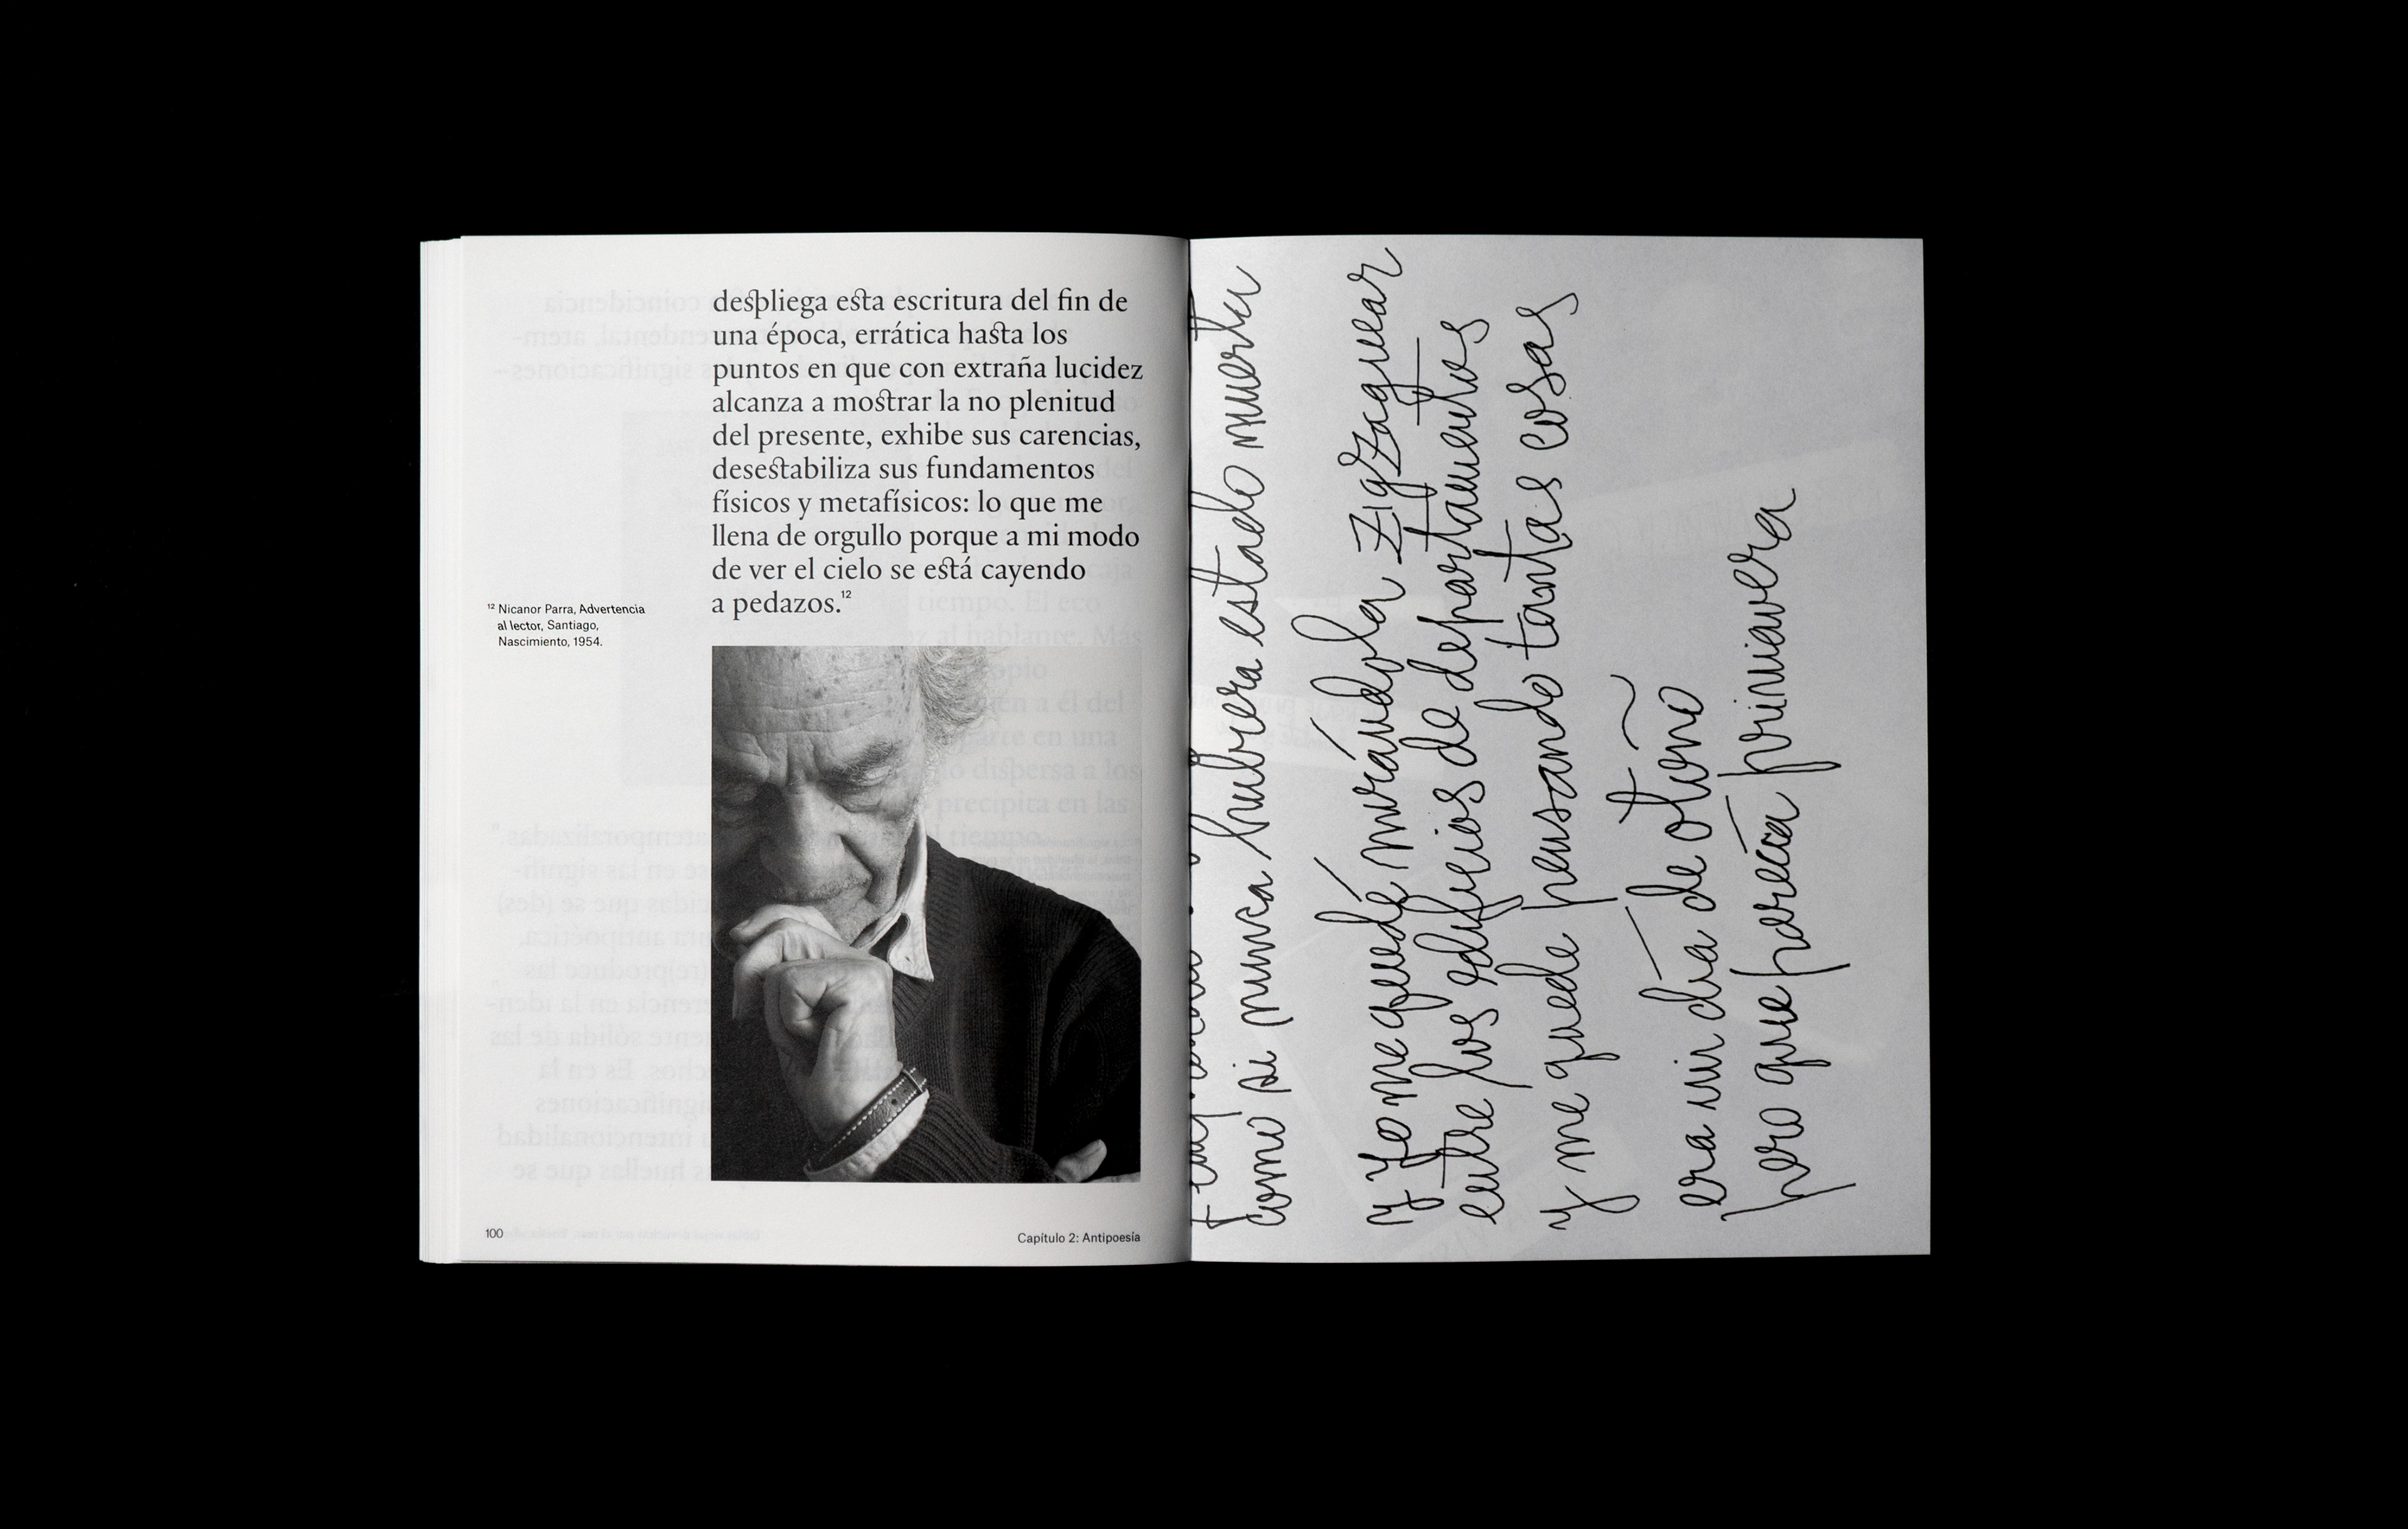 despliega esta escritura del fin de
una época, errática hasta los
puntos en que con extraña lucidez
alcanza a mostrar la no plenitud
del presente, exhibe sus carencias,
desestabiliza sus fundamentos
físicos y metafísicos: lo que me
llena de orgullo porque a mi modo
de ver el cielo se está cayendo
a pedazos.¹²
¹² Nicanor Parra, Advertencia
al lector, Santiago,
Nascimiento, 1954.
100
Capítulo 2: Antipoesía
como si nunca hubiera estado muerta
y Yo me quedé mirándola zigzaguear
entre los edificios de departamentos
y me quedé pensando tantas cosas
era un día de otoño
pero que parecía primavera